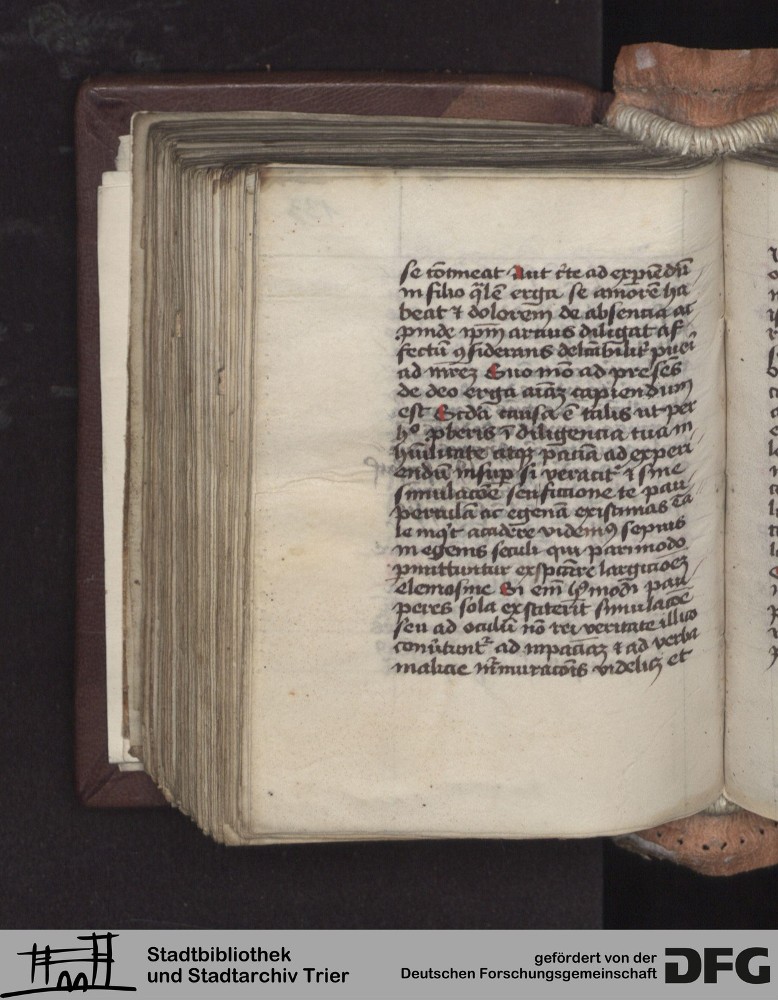 se cōmeat Aut c̄te ad expiēdū
in filio q̄lē erga se amorē ha
beat ⁊ dolorem de absencia ac
ꝓinde ip̄m artius diligat af
fectū ꝯsiderans delcābilit᷑ pueri
ad mrēꝫ Quo mō ad presēs
de deo erga aīaꝫ capiendum
est Scd̄a causa ē talis ut per
hͦ ꝓberis ī diligencia tuam
hūilitate atqꝫ paciā ad experi
endū insup si veracit᷑ ⁊ sine
simulacōe seu fictione te pau
perculā ac egenā existimas Ta
le inqͥt accidere videmꝰ sepius
in egenis seculi qui pari modo
ꝑmittuntur exspectāre largicioeꝫ
elemosine Si em̄ hꝰmodi pau
peres sola exstiterit simulacōe
seu ad oculū nō rei veritate illico
conūtunt᷑ ad inpaciāꝫ ⁊ ad verba
malicie murmuracōis videlicꝫ et
Stadtbibliothek
und Stadtarchiv Trier
gefördert von der
Deutschen Forschungsgemeinschaft
DFG